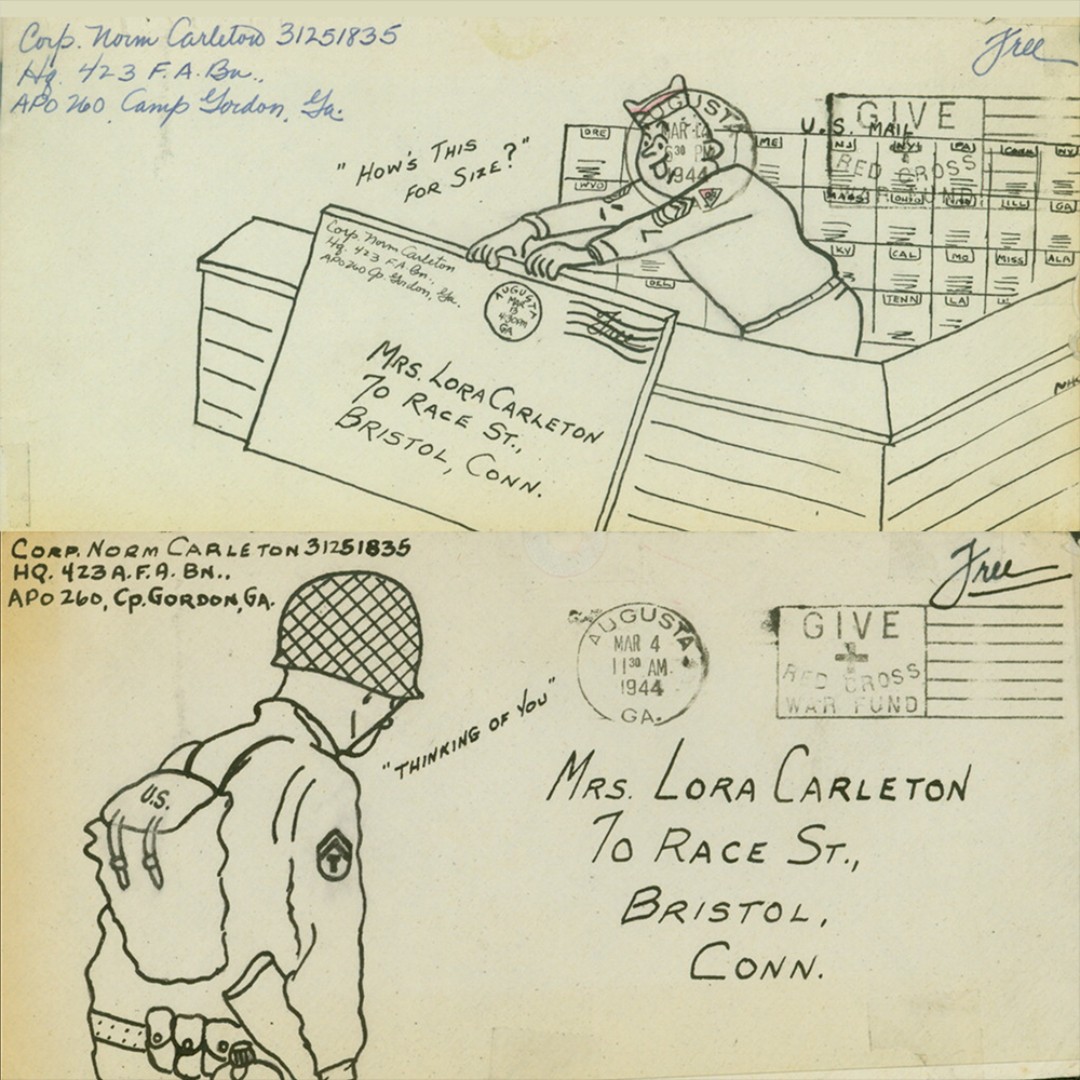 Corp. Norm Carleton 31251835
Hq. 423 F.A. Bn..
APO 260, Camp Gordon, Ga.
Free
"HOW'S THIS
FOR SIZE?"
AUGUSTA
1944
GIVE
RED CROSS
WAR FUND
U.S. MAIL
ORE
ME
NJ
NY
PA
CONN
NV
WYO
MASS
OHIO
ILL
GA
KY
CAL
MO
MISS
ALA
DEL
TENN
LA
Corp. Norm Carleton
Hq. 423 F.A. Bn.,
APO 260 Cp. Gordon, Ga.
AUGUSTA
MAR
4:30 PM
GA
Free
MRS. LORA CARLETON
70 RACE ST.,
BRISTOL, CONN.
CORP. NORM CARLETON 31251835
HQ. 423 A.F.A. BN..
APO 260, CP. GORDON, GA.
Free
AUGUSTA
MAR 4
11 30 AM
1944
GA.
GIVE
RED CROSS
WAR FUND
"THINKING OF YOU"
U.S.
T
MRS. LORA CARLETON
70 RACE ST.,
BRISTOL,
CONN.